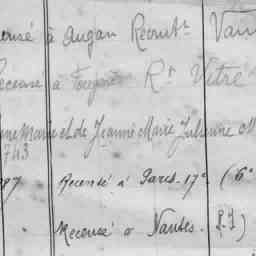 à Augan Recrutt Van
Recensé à Fougères Rt Vitré
ne Marie et de Jeanne Marie Julienne M
743
87 Recensé à Paris. 17e (6e
Recensé à Nantes. R.I)